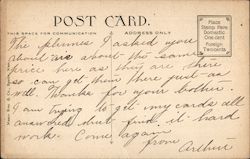 POST CARD.
THIS SPACE FOR COMMUNICATION
ADDRESS ONLY
Place
Stamp Here
Domestic
One cent
Foreign
Two cents
The plumes I asked you
about are about the same
price here as they are there
so can get them there just as
well. Thanks for your bother.
I am trying to get my cards all
answered but find it hard
work. Come again
from Arthur